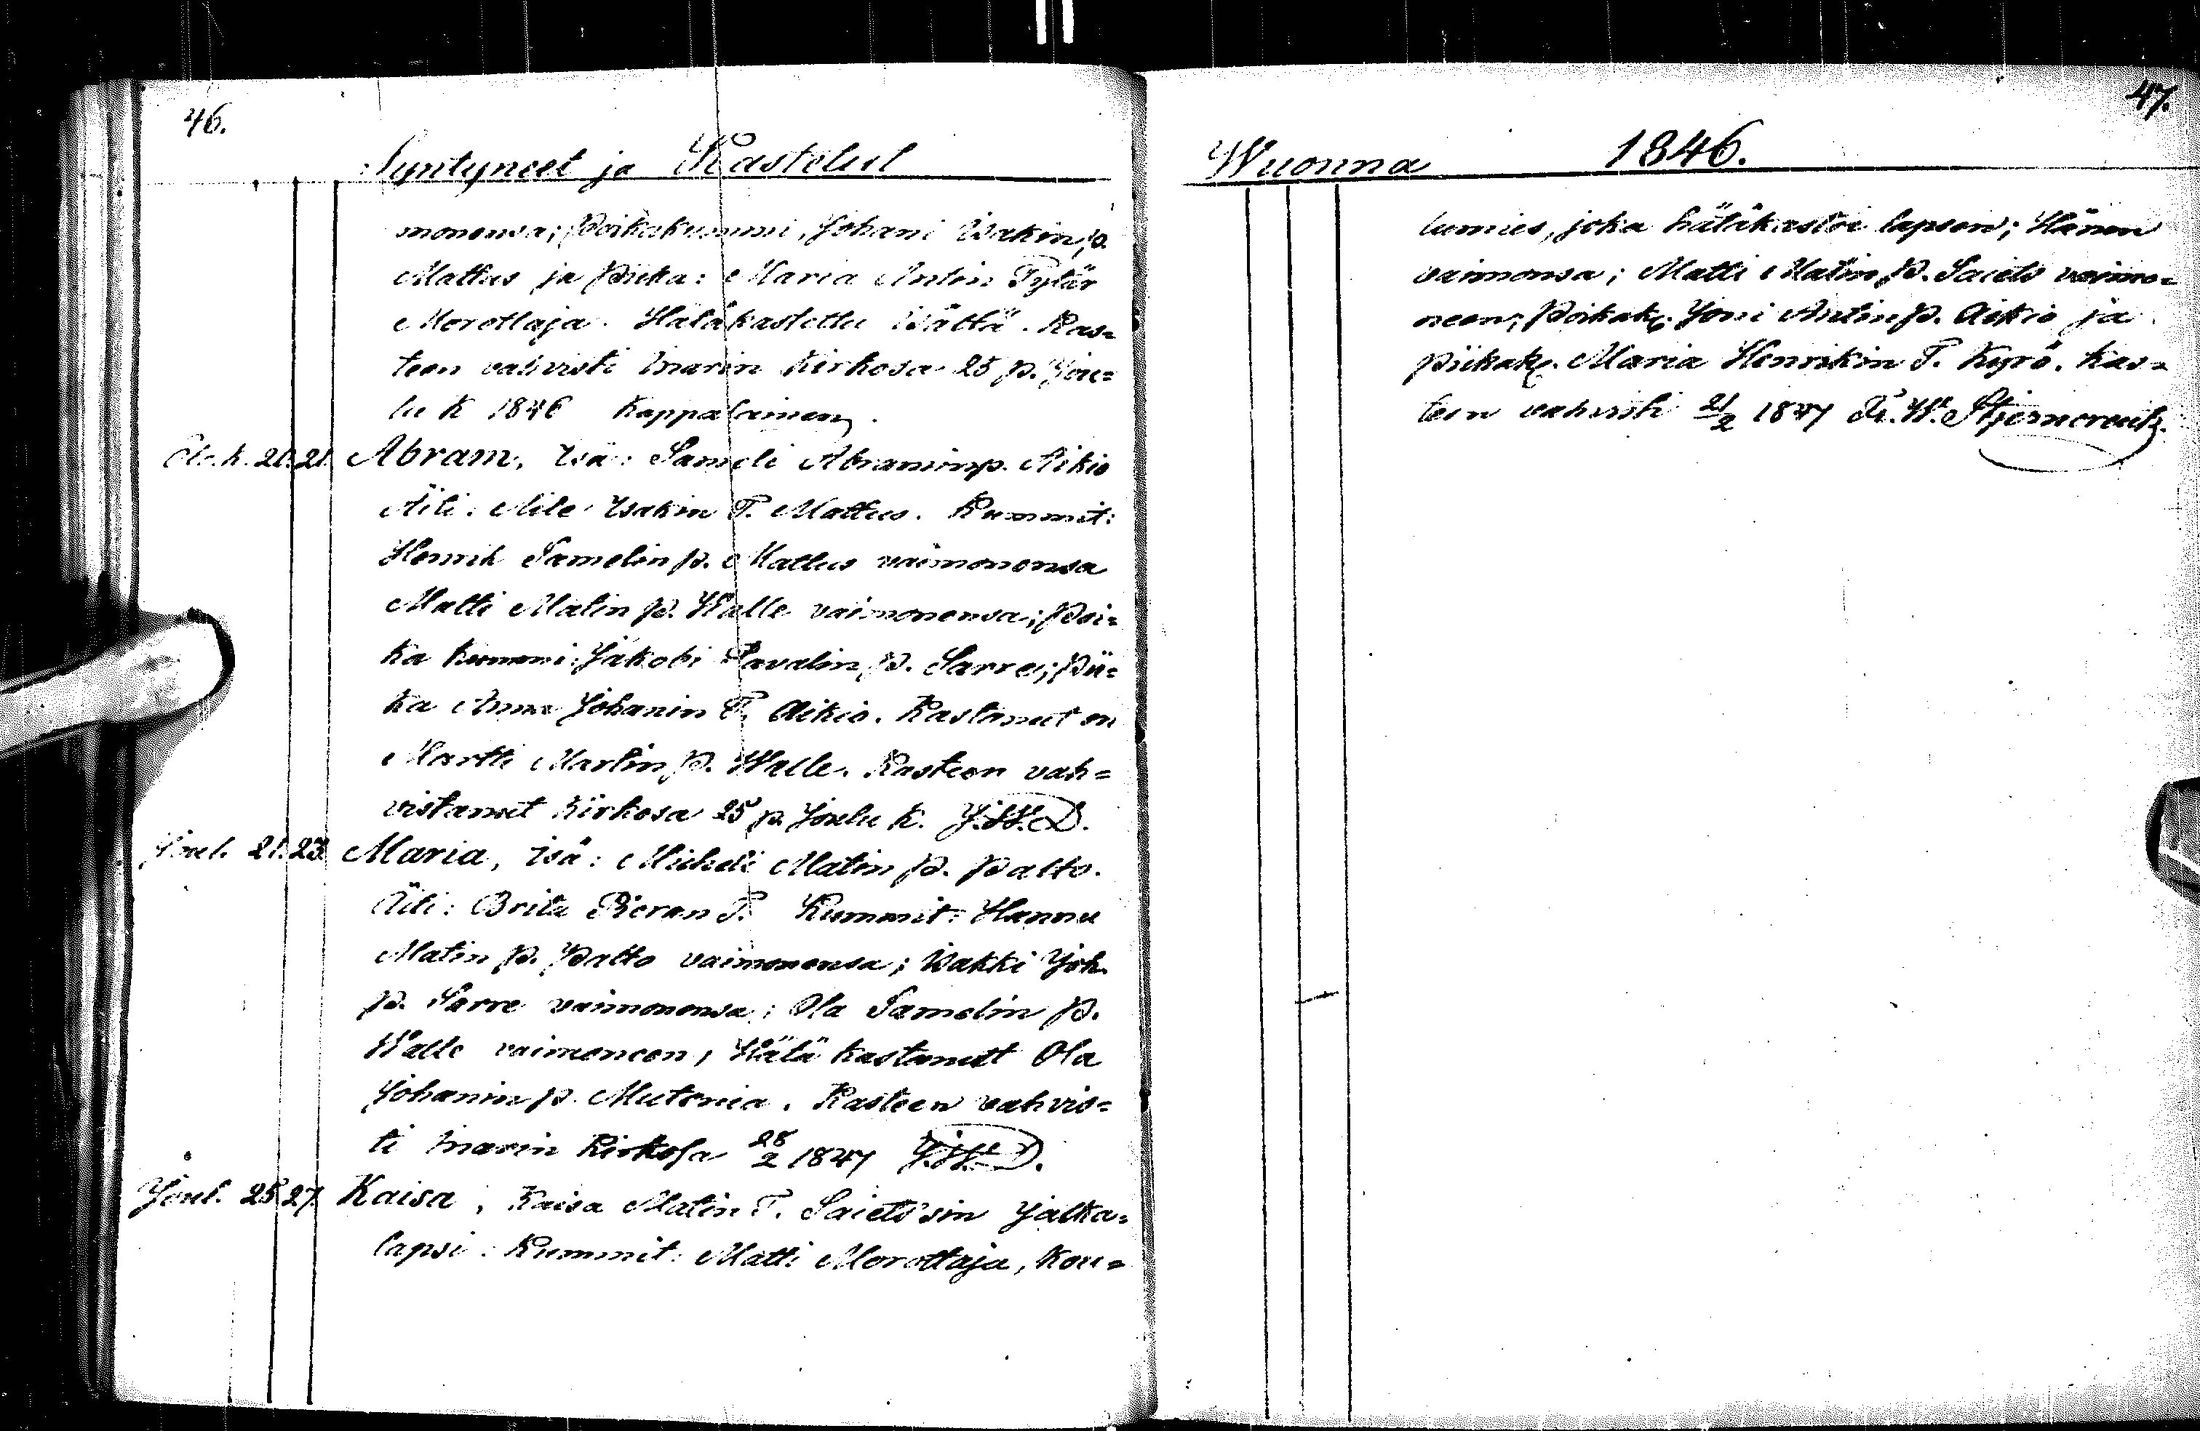 46.
Syntyneet ja Kastetut
monensa; Poikakummi, Johani Isakin p.
Mattus ja Piika: Maria Antin Tytär
Morottaja. Hätäkastettu Isältä. Kas=
teen vahvisti Inarin Kirkosa 25 p. Jou=
lu K 1846 Kappalainen.
21. 21. Abram, Isä: Sameli Abramin p. Aikio
Äiti: Aile Isakin T. Mattus. Kummit:
Henrik Samelin p. Mattus vaimonensa
Matti Matin p. Walle vaimonensa; Poi=
ka kummi: Jakobi Pavalin p. Sarre; Pii=
ka Anna Johanin T. Aikio. Kastanut on
Martti Martin p. Walle. Kasteen vah=
vistanut Kirkosa 25 p. Joulu K. J.W.D.
Joul. 21. 23. Maria, Isä: Micheli Matin p. Palto.
Äiti: Brita Pieran T. Kummit: Hannu
Matin p. Palto vaimonensa; Isakki Joh.
p. Sarre vaimonensa; Ola Samelin p.
Walle vaimoneen; Hätä kastanut Ola
Johanin p. Mutenia. Kasteen vahvis=
ti Inarin Kirkosa 28/2 1847 J.W.D.
Joul. 25. 27. Kaisa, Kaisa Matin T. Saiets'sin Jalka=
lapsi. Kummit: Matti Morottaja, Kou=
47.
Wuonna 1846.
lumies, joka hätäkastoi lapsen; Hänen
vaimonsa; Matti Matin p. Saiets vaimo=
neen; Poikak. Joni Antin p. Aikio ja
Piikak. Maria Henrikin T. Kyrö. Kas=
teen vahvisti 21/2 1847 Fr. W. Stjerncreutz.